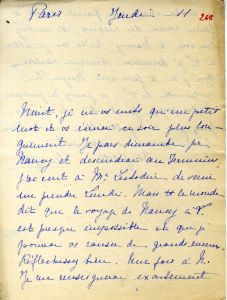 Paris Jeudi 11 268
Minet, je ne mets que un petit
mot et vs écrirai ce soir plus lon-
guement. Je pars dimanche pr
Nancy et descendrai au
j'ai écrit à Mr de venir
me prendre Lundi. Mais tt le monde
dit que le voyage de Nancy à V.
est presque impossible et que je
pourrai vs causer de grands ennuis
Réfléchissez bien. Une fois à N.
Je me renseignerai exactement